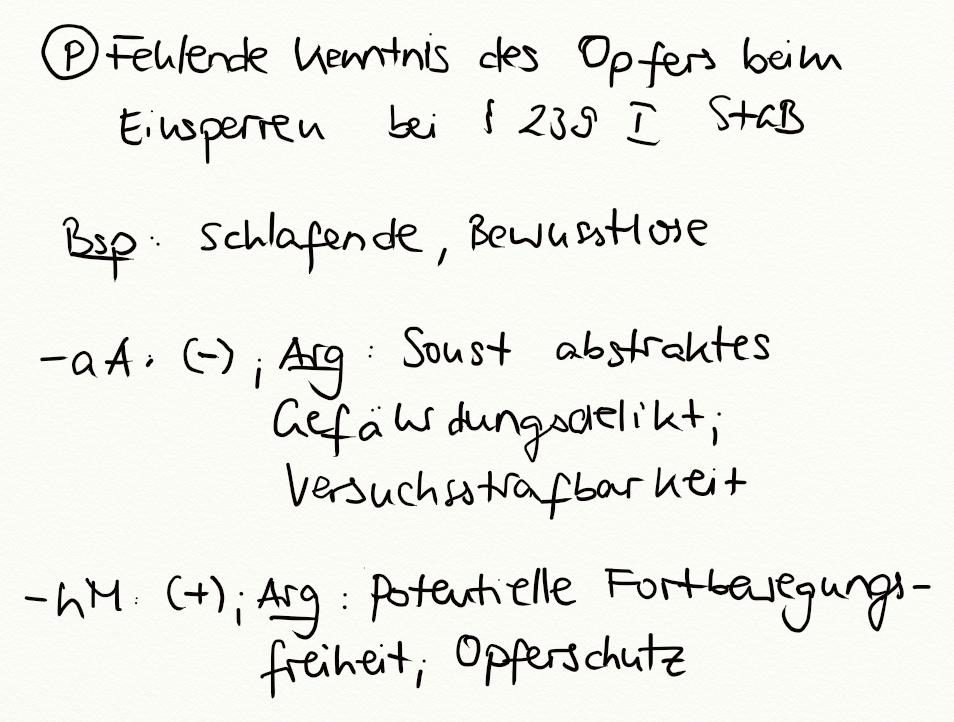 Ⓟ Fehlende Kenntnis des Opfers beim
Einsperren bei § 239 I StGB
Bsp: Schlafende, Bewusstlose
- aA: (-); Arg: Sonst abstraktes
Gefährdungsdelikt;
Versuchsstrafbarkeit
- hM: (+); Arg: Potentielle Fortbewegungs-
freiheit; Opferschutz